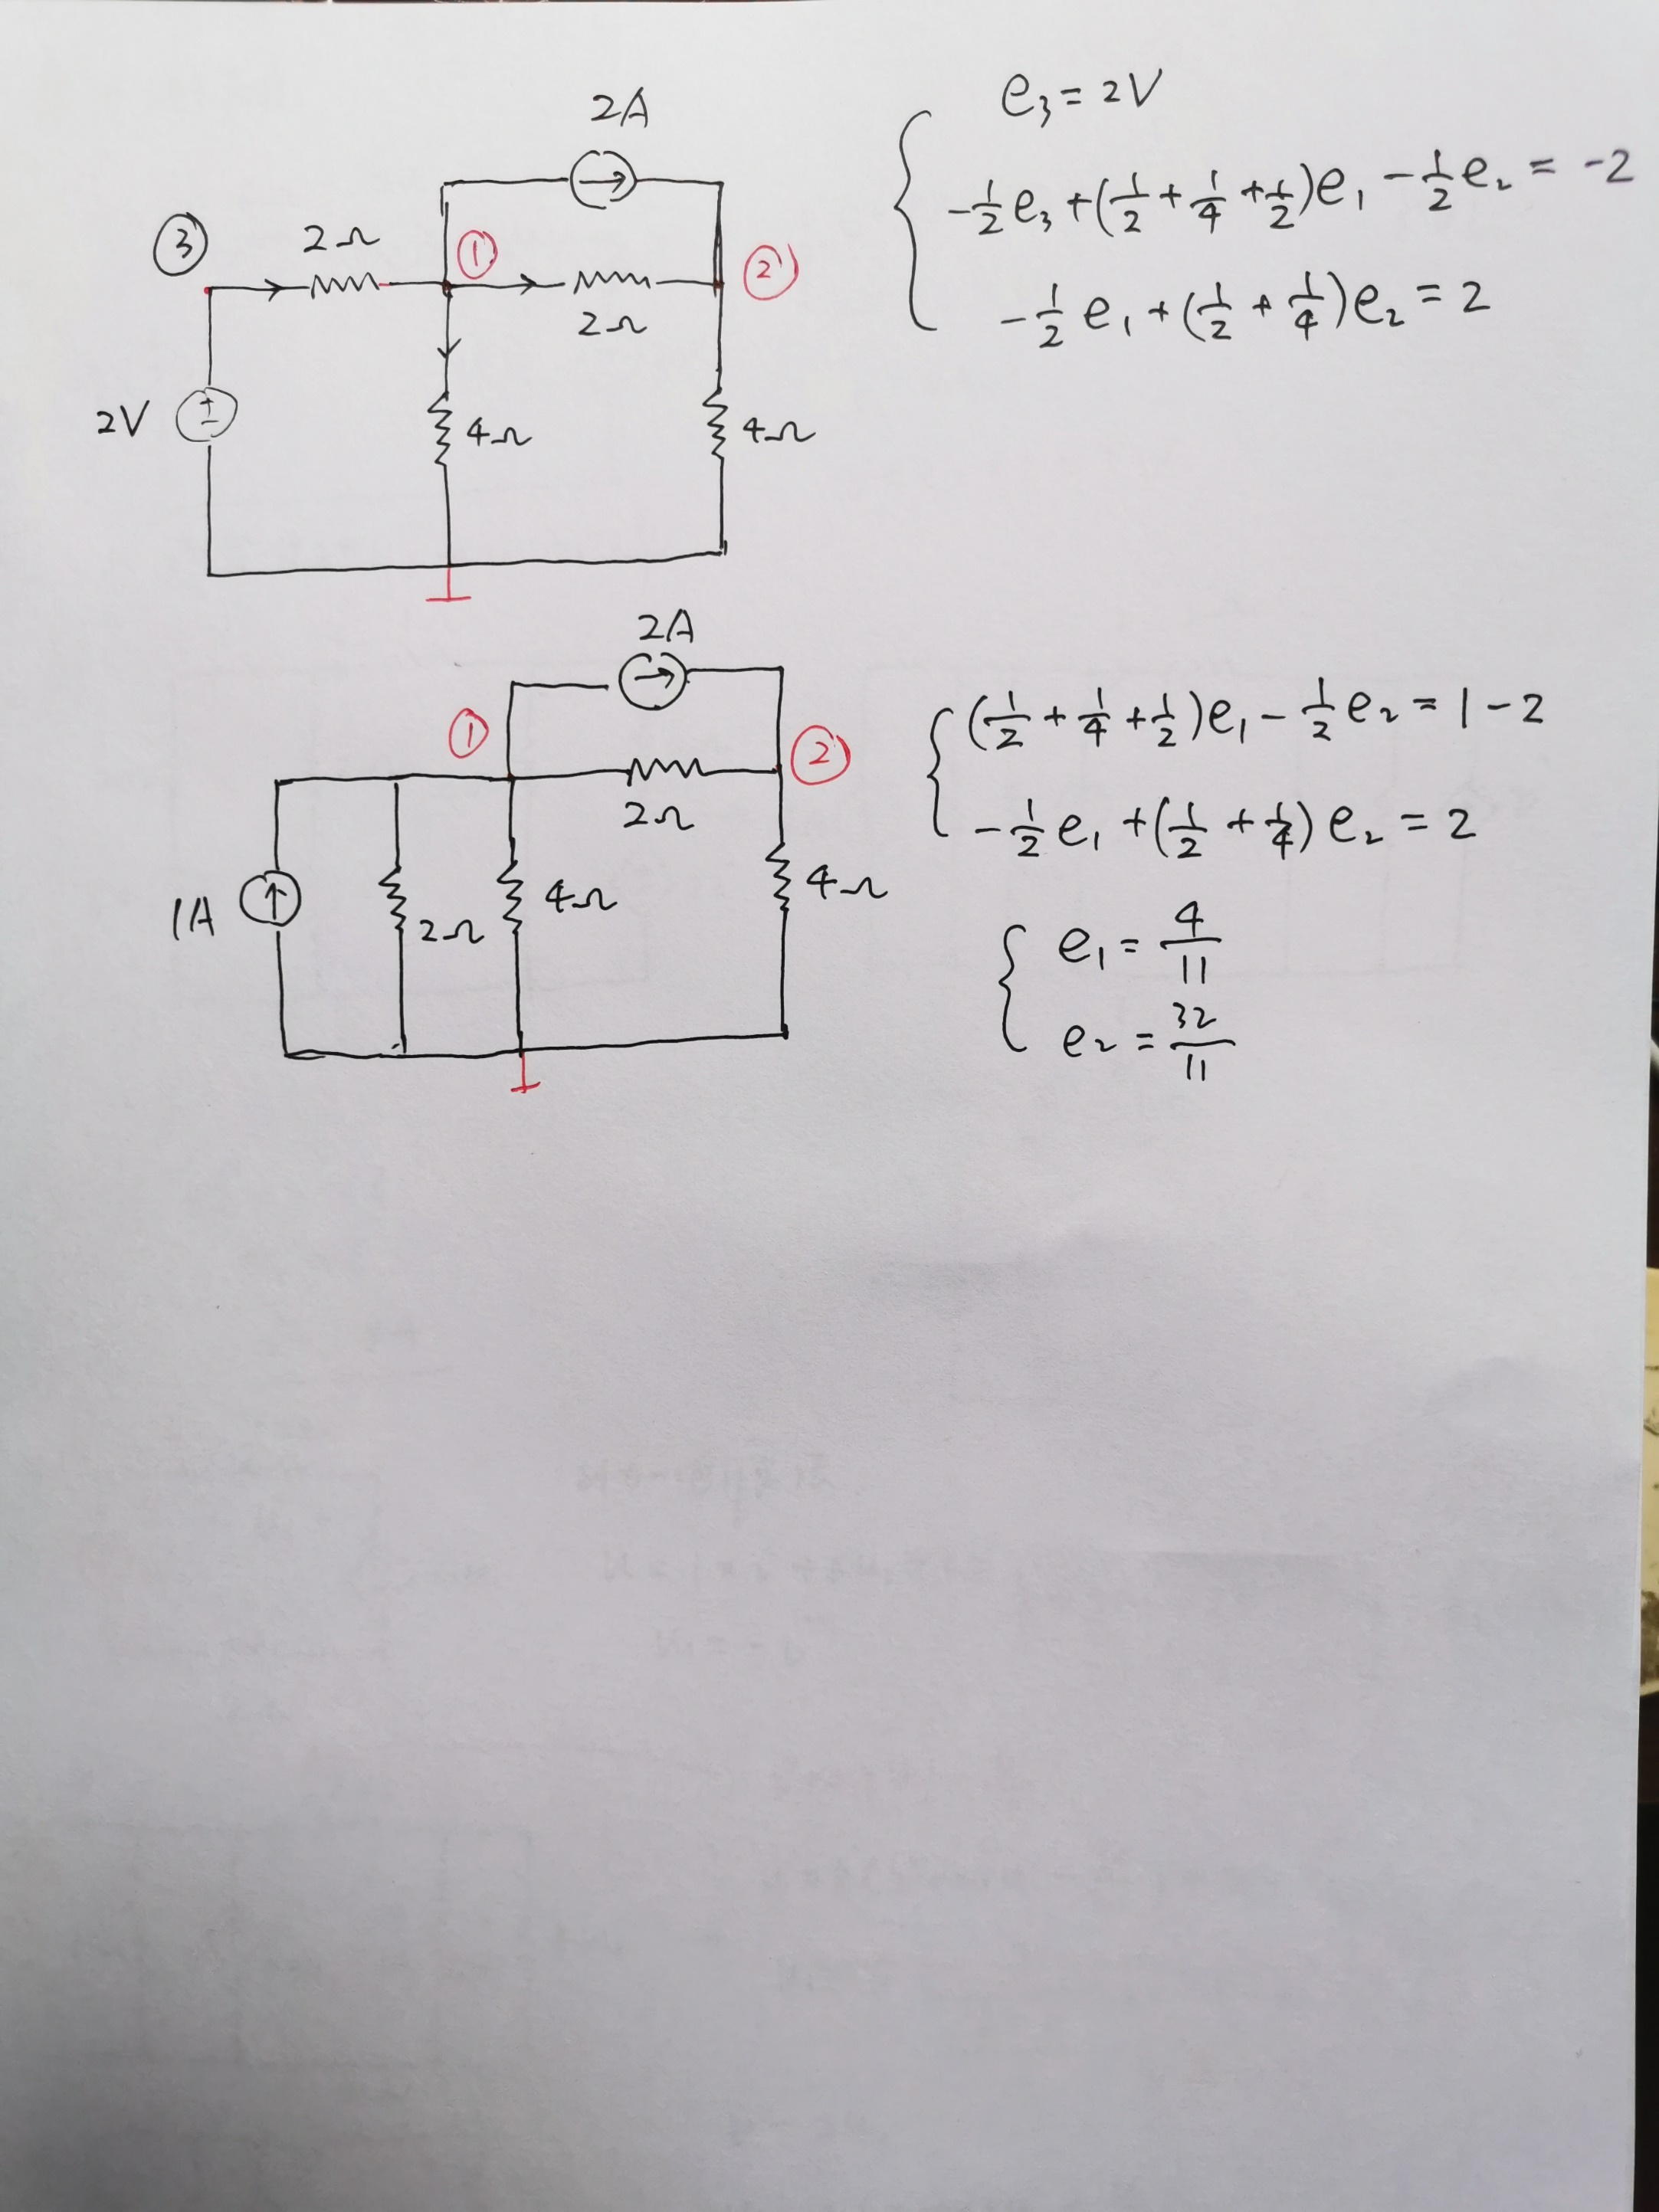 2A
③
2Ω
①
②
2Ω
2V
4Ω
4Ω
e₃ = 2V
-1/2 e₃ + (1/2 + 1/4 + 1/2)e₁ - 1/2 e₂ = -2
-1/2 e₁ + (1/2 + 1/4)e₂ = 2
2A
①
②
2Ω
1A
2Ω
4Ω
4Ω
(1/2 + 1/4 + 1/2)e₁ - 1/2 e₂ = 1 - 2
-1/2 e₁ + (1/2 + 1/4) e₂ = 2
e₁ = 4/11
e₂ = 32/11